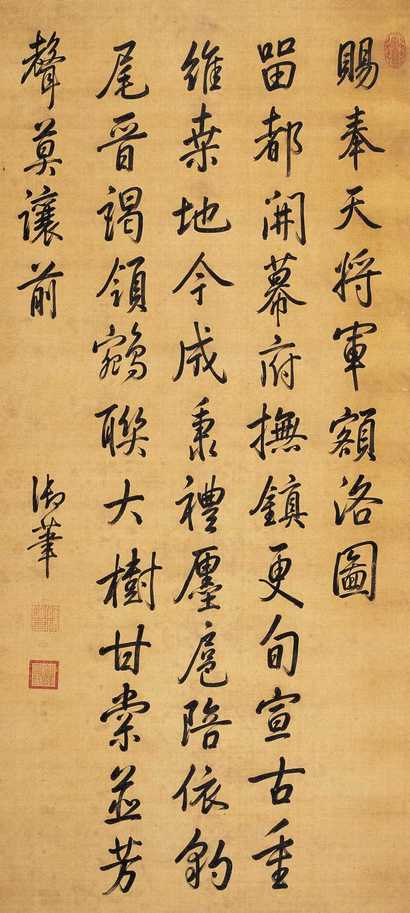 賜奉天将軍額洛圖
留都開幕府撫鎮更旬宣古重
維桒地今咸秉禮廛扈陪依豹
尾晉謁領鵷聯大樹甘棠並芳
聲莫讓前
御筆